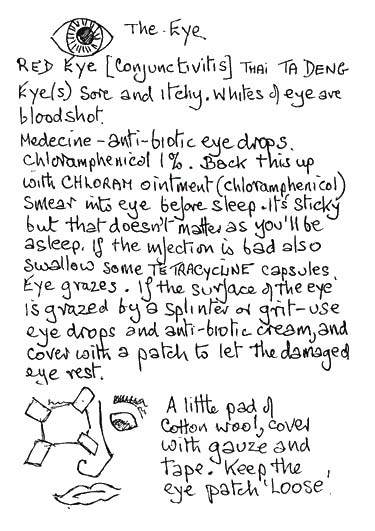 The Eye
RED Eye [Conjunctivitis] THAI TA DENG
Eye(s) Sore and Itchy. Whites of eye are
bloodshot.
Medecine - anti-biotic eye drops.
Chloramphenicol 1%. Back this up
with CHLORAM ointment (chloramphenicol)
Smear into eye before sleep. It's sticky
but that doesn't matter as you'll be
asleep. If the infection is bad also
swallow some TETRACYCLINE capsules.
Eye grazes. If the surface of the eye
is grazed by a splinter or grit - use
eye drops and anti-biotic cream, and
cover with a patch to let the damaged
eye rest.
A little pad of
Cotton wool, cover
with gauze and
tape. Keep the
eye patch 'Loose'.